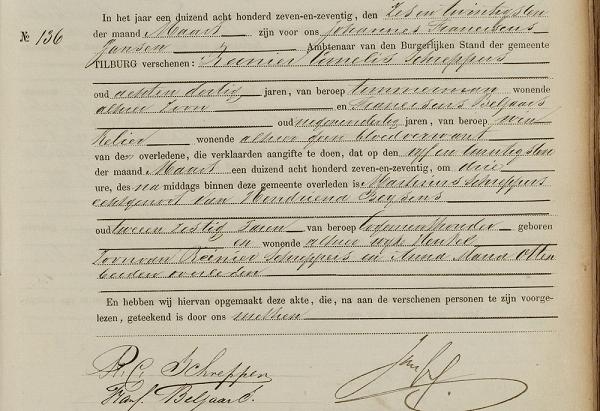 In het jaar een duizend acht honderd zeven-en-zeventig, den Zes en twintigsten
№ 136
der maand Maart zijn voor ons Johannes Franciscus
Jansen Ambtenaar van den Burgerlijken Stand der gemeente
TILBURG verschenen: Reinier Cornelis Schreppers
oud achten dertig jaren, van beroep timmerman wonende
alhier zoon en Franciscus Beljaars
oud negenendertig jaren, van beroep win
kelier wonende alhier geen bloedverwant
van den overledene, die verklaarden aangifte te doen, dat op den vijf en twintigsten
der maand Maart een duizend acht honderd zeven-en-zeventig, om drie
ure, des na middags binnen deze gemeente overleden is Martinus Schreppers
echtgenoot van Hendriena
oud twee en zestig Jaren van beroep geboren
en wonende alhier wijk
Zoon van Reinier Schreppers en Anna Maria Otten
beiden overleden
En hebben wij hiervan opgemaakt deze akte, die, na aan de verschenen personen te zijn voorge-
lezen, geteekend is door ons met hen
R. C. Schreppers
Fran. Beljaars.